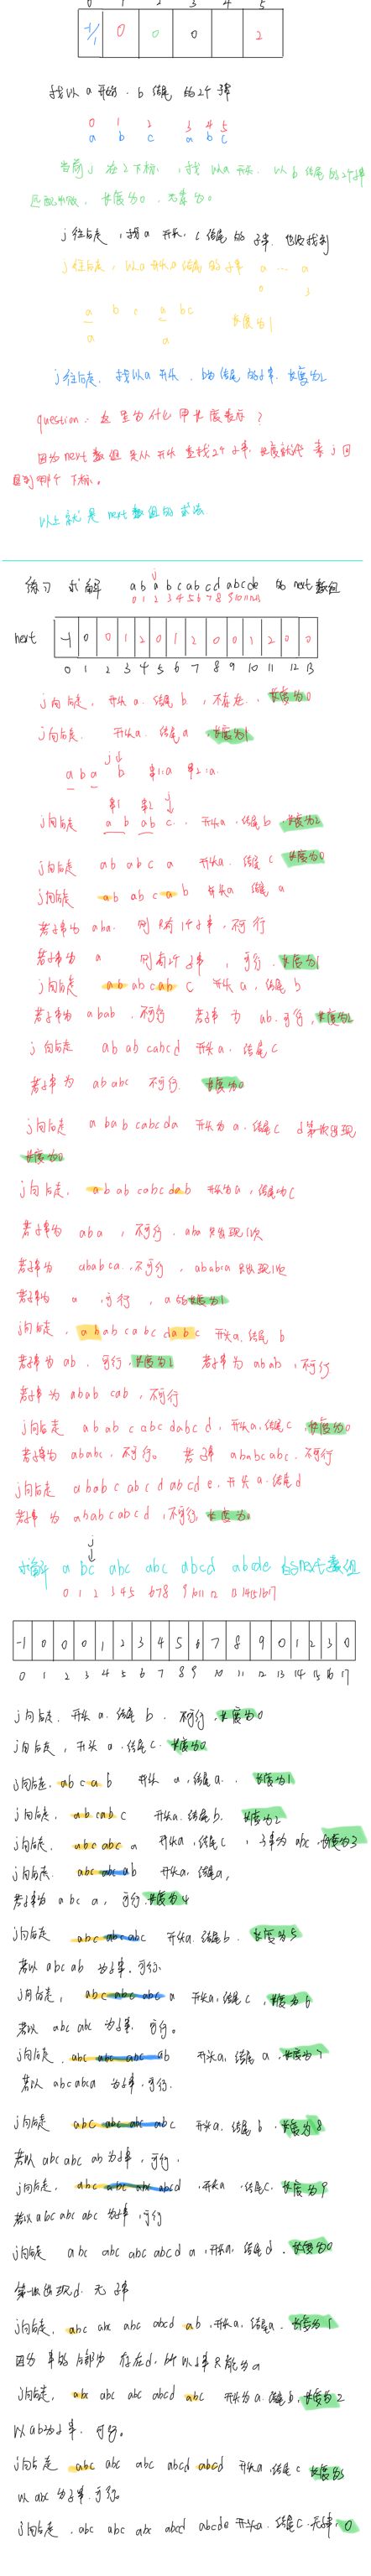 0 1 2 3 4 5
-1 0 0 0 2
找以a开始，b结尾的2个子串
0 1 2 3 4 5
a b c a b c
当前j在2下标，找以a开头，以b结尾的2个子串
匹配失败，长度为0，元素为0
j往后走，找a开头，c结尾的子串，也没找到
j往后走，以a开头a结尾的子串 a … a
0 3
a b c a bc 长度为1
a a
j往后走，找以a开头，b为结尾的子串，长度为2
question：这里为什么用长度表示？
因为next数组是从开头查找2个子串，长度就代表j回
退到哪个下标。
以上就是next数组的求法
j
练习 求解 ababcabcdabcde的next数组
0 1 2 3 4 5 6 7 8 9 10 11 12 13
next -1 0 0 1 2 0 1 2 0 0 1 2 0 0
0 1 2 3 4 5 6 7 8 9 10 11 12 13
j向后走，开头a，结尾b，不存在，长度为0
j向后走，开头a，结尾a，长度为1
j↓
a b a b 串1:a 串2:a
串1 串2 ↓
j向后走 a b ab c，开头a，结尾b，长度为2
j向后走 ab abc a 开头a，结尾c 长度为0
j向后走 ab abc a b 开头a 结尾a
若子串为aba，则只有1个子串，不可行
若子串为a 则有2个子串，可行，长度为1
j向后走 ab abcab c 开头a，结尾b
若子串为abab，不可行 若子串为ab，可行，长度为2
j向后走 ab ab cabcd 开头a，结尾c
若子串为ababc 不可行 长度为0
j向后走 abab cabcda 开头为a，结尾c d第一次出现
长度为0
j向后走，abab cabcdab 开头为a，结尾为c
若子串为aba，不可行，aba只出现1次
若子串为ababca，不可行，ababca只出现1次
若子串为 a，可行，a的长度为1
j向后走，abab cabc dabc 开头a，结尾b
若子串为ab，可行，长度为1 若子串为abab，不可行
若子串为abab cab，不可行
j向后走 abab cabc dabc d，开头a，结尾c，长度为0
若子串为ababc，不可行。若子串ababcabc，不可行
j向后走 abab cabcd abcd e，开头a，结尾d
若子串为ababcabcd，不可行，长度为0
j
↓
求解 a bc abc abc abcd abcde的next数组
0 1 2 3 4 5 6 7 8 9 10 11 12 13 14 15 16 17
-1 0 0 0 1 2 3 4 5 6 7 8 9 0 1 2 3 0
0 1 2 3 4 5 6 7 8 9 10 11 12 13 14 15 16 17
j向后走，开头a，结尾b，不可行，长度为0
j向后走，开头a，结尾c，长度为0
j向后走，abc a b 开头a，结尾a，长度为1
j向后走，ab cab c 开头a，结尾b，长度为2
j向后走，abc abc a 开头a，结尾c，子串为abc，长度为3
j向后走 abc abc ab 开头a，结尾a，
若子串为abc a，可行，长度为4
j向后走 abc abc abc 开头a，结尾b，长度为5
若以abc ab为子串，可行
j向后走，abc abc abc a 开头a，结尾c，长度为6
若以abc abc为子串，可行。
j向后走，abc abc abc ab 开头a，结尾a，长度为7
若以abc abca为子串，可行，
j向后走 abc abc abc abc 开头a，结尾b，长度为8
若以abc abc ab为子串，可行，
j向后走，abc abc abc abcd，开头a，结尾c，长度为9
若以abc abc abc为子串，可行
j向后走 abc abc abc abcd a，开头a，结尾d，长度为0
第一次出现d，无子串
j向后走，abc abc abc abcd ab，开头a，结尾a，长度为1
因为串的后部分存在d，所以子串只能为a
j向后走，abc abc abc abcd abc，开头为a，结尾b，长度为2
以ab为子串，可行。
j向后走 abc abc abc abcd abcd 开头a，结尾c 长度为3
以abc为子串，可行。
j向后走，abc abc abc abcd abcde 开头a，结尾c，无子串，0